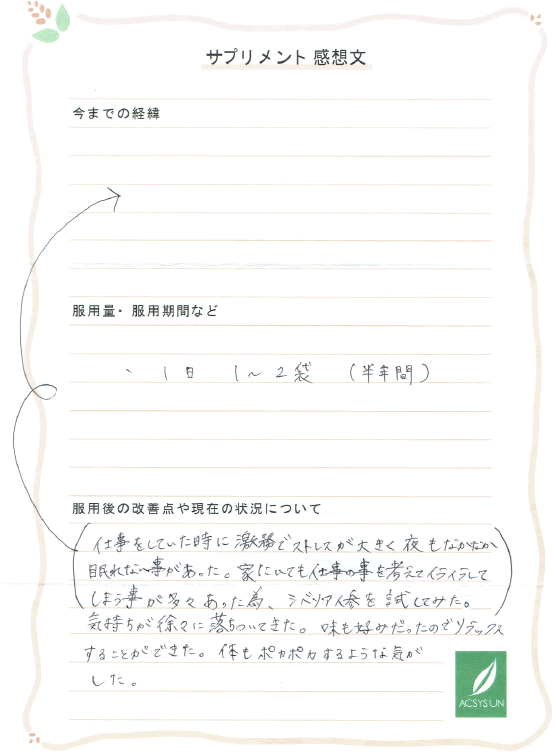 サプリメント 感想文
今までの経緯
服用量・服用期間など
・ 1日 1〜2袋 (半年間)
服用後の改善点や現在の状況について
(仕事をしていた時に激務でストレスが大きく夜もなかなか
眠れない事があった。家にいても仕事の事を考えてイライラして
しまう事が多々あった為、シベリア人参を試してみた。)
気持ちが徐々に落ちついてきた。味も好みだったのでリラックス
することができた。体もポカポカするような気が
した。
ACSYSUN